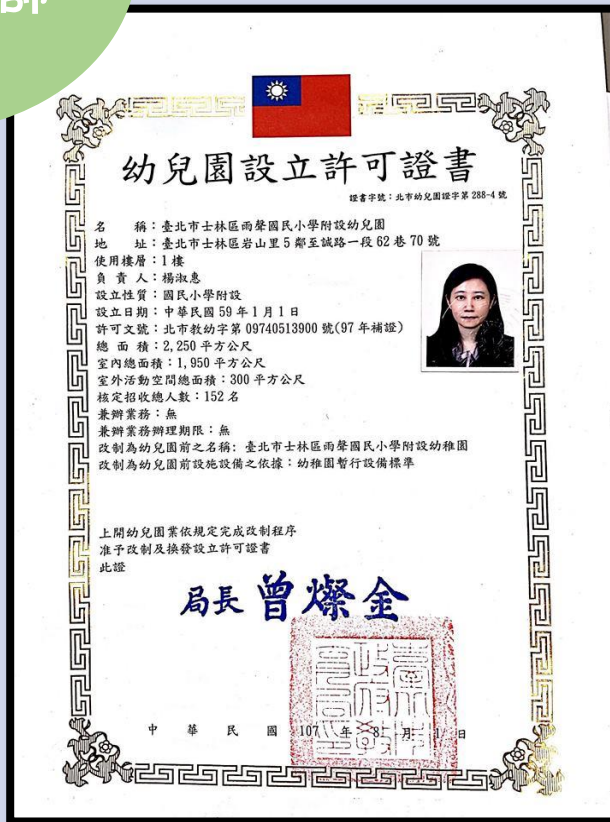 幼兒園設立許可證書
證書字號：北市幼兒園證字第 288-4 號
名　　稱：臺北市士林區雨聲國民小學附設幼兒園
地　　址：臺北市士林區岩山里 5 鄰至誠路一段 62 巷 70 號
使用樓層：1 樓
負 責 人：楊淑惠
設立性質：國民小學附設
設立日期：中華民國 59 年 1 月 1 日
許可文號：北市教幼字第 09740513900 號(97 年補證)
總 面 積：2,250 平方公尺
室內總面積：1,950 平方公尺
室外活動空間總面積：300 平方公尺
核定招收總人數：152 名
兼辦業務：無
兼辦業務辦理期限：無
改制為幼兒園前之名稱：臺北市士林區雨聲國民小學附設幼稚園
改制為幼兒園前設施設備之依據：幼稚園暫行設備標準
上開幼兒園業依規定完成改制程序
准予改制及換發設立許可證書
此證
局長 曾燦金
中 華 民 國 107 年 8 月 1 日